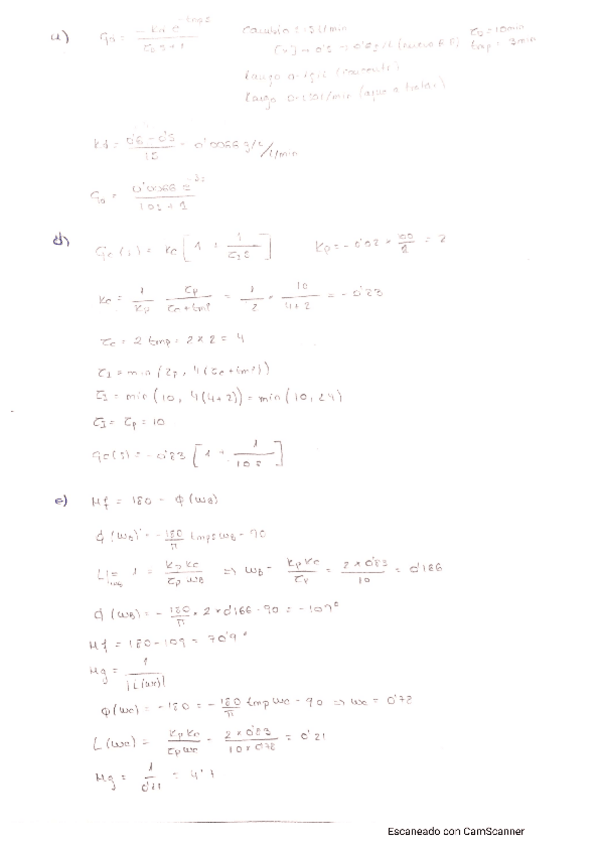 c)
Gd = -Kd e^-tmp s / τd s + 1
l/min
τd = 10 min
tmp = 3 min
(agua a tratar)
Kd = 0'6 - 0'5 / 15 = 0'0066 g/l / l/min
G0 = 0'0066 e^-3s / 10s + 1
d)
Gc(s) = Kc [1 + 1 / τI s] Kp = - 0'02 × 100 / 1 = 2
Kc = 1 / Kp τp / τc + tmp = 1 / 2 × 10 / 4+2 = - 0'83
τc = 2 tmp = 2 × 2 = 4
τI = min (τp, 4(τc + tmp))
τI = min (10, 4(4+2)) = min (10, 24)
τI = τp = 10
gc(s) = - 0'83 [1 + 1 / 10s]
e) Mf = 180 - φ(ωB)
φ(ωB) = - 180 / π tmp ωB - 90
1 = Kp Kc / τp ωB ⇒ ωB = Kp Kc / τp = 2 × 0'83 / 10 = 0'166
φ(ωB) = - 180 / π × 2 × 0'166 - 90 = - 109°
Mf = 180 - 109 = 70'9°
Mg = 1 / |L(ωc)|
φ(ωc) = - 180 = - 180 / π tmp ωc - 90 ⇒ ωc = 0'78
L(ωc) = Kp Kc / τp ωc = 2 × 0'83 / 10 × 0'78 = 0'21
Mg = 1 / 0'21 = 4'7
Escaneado con CamScanner